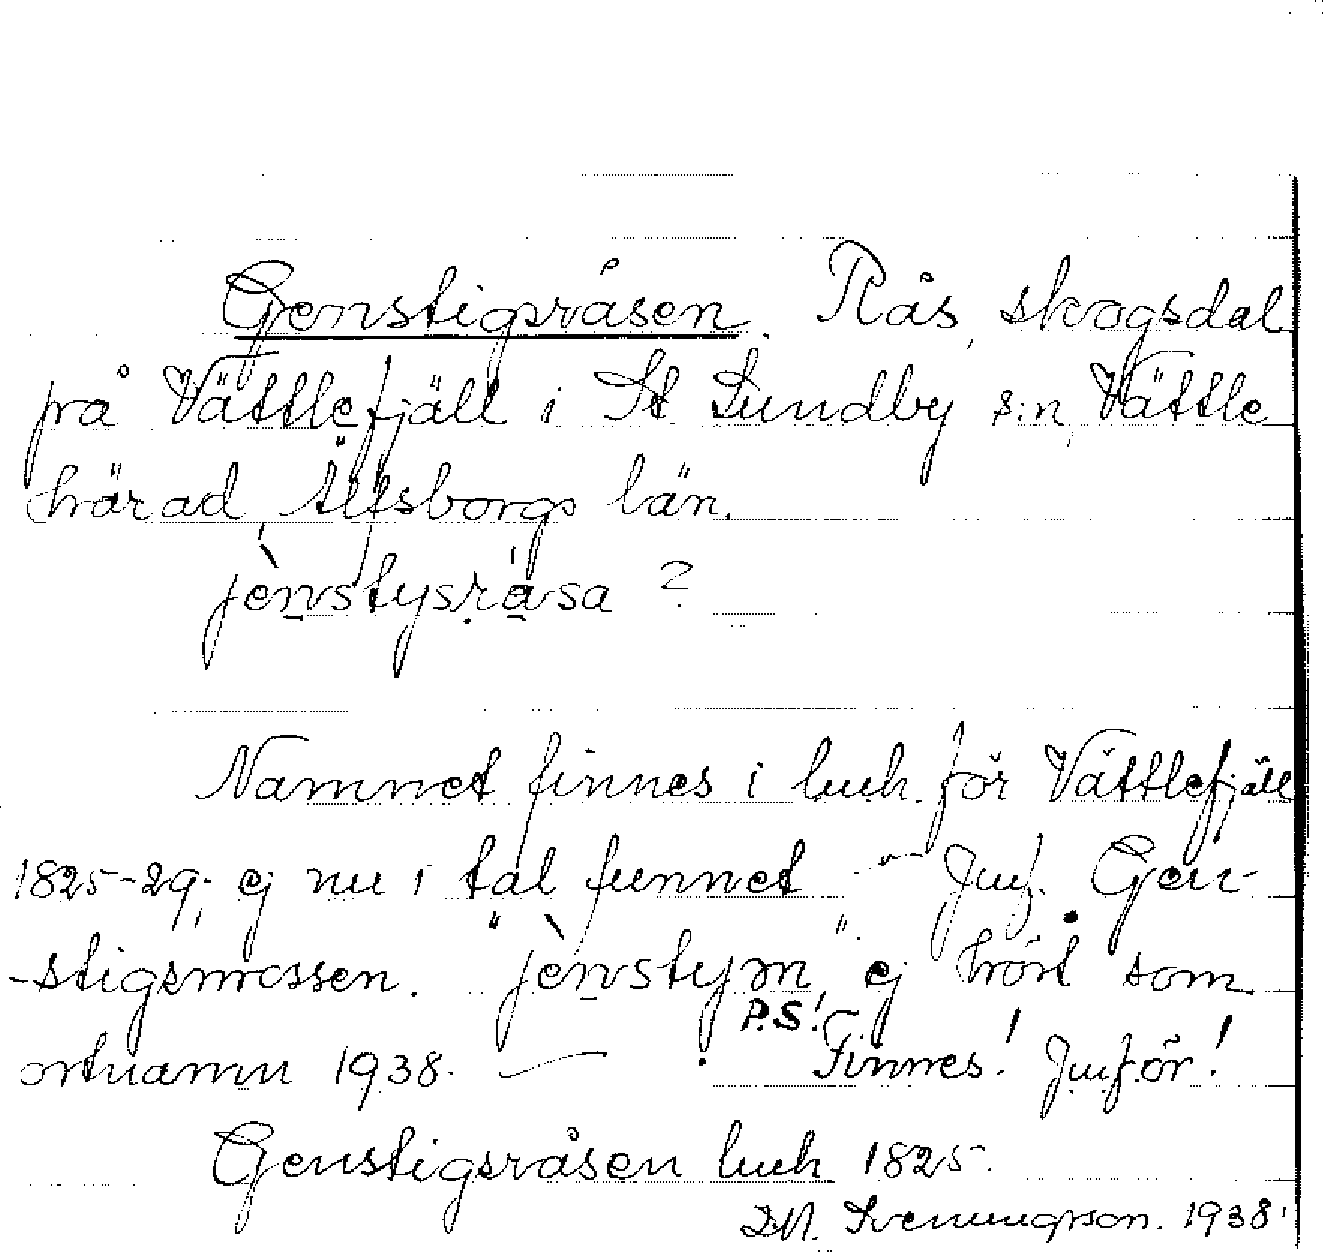 Genstigsråsen. Rås, skogsdal
på Vättlefjäll i St Lundby s:n, Vättle
härad, Älfsborgs län.
jènstysråsa ?
Namnet finnes i luh. för Vättlefjäll
1825-29; ej nu i tal funnet. - Jmf. Gen-
-stigsmossen. "jènstym", ej hört som
ortnamn 1938. — P.S.! Finnes! Jmför!
Genstigsråsen luh 1825.
Svenungson. 1938.